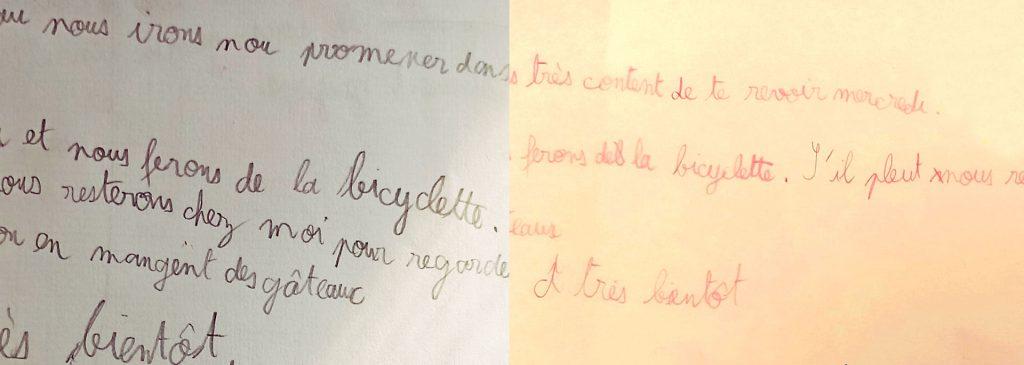 nous irons nou promener dans
et nous ferons de la bicyclette.
ous resterons chez moi pour regarde
en mangent des gâteaux
ès bientôt.
s très content de te revoir mercredi.
ferons de la bicyclette. S'il pleut nous re
eaux
A très bientôt